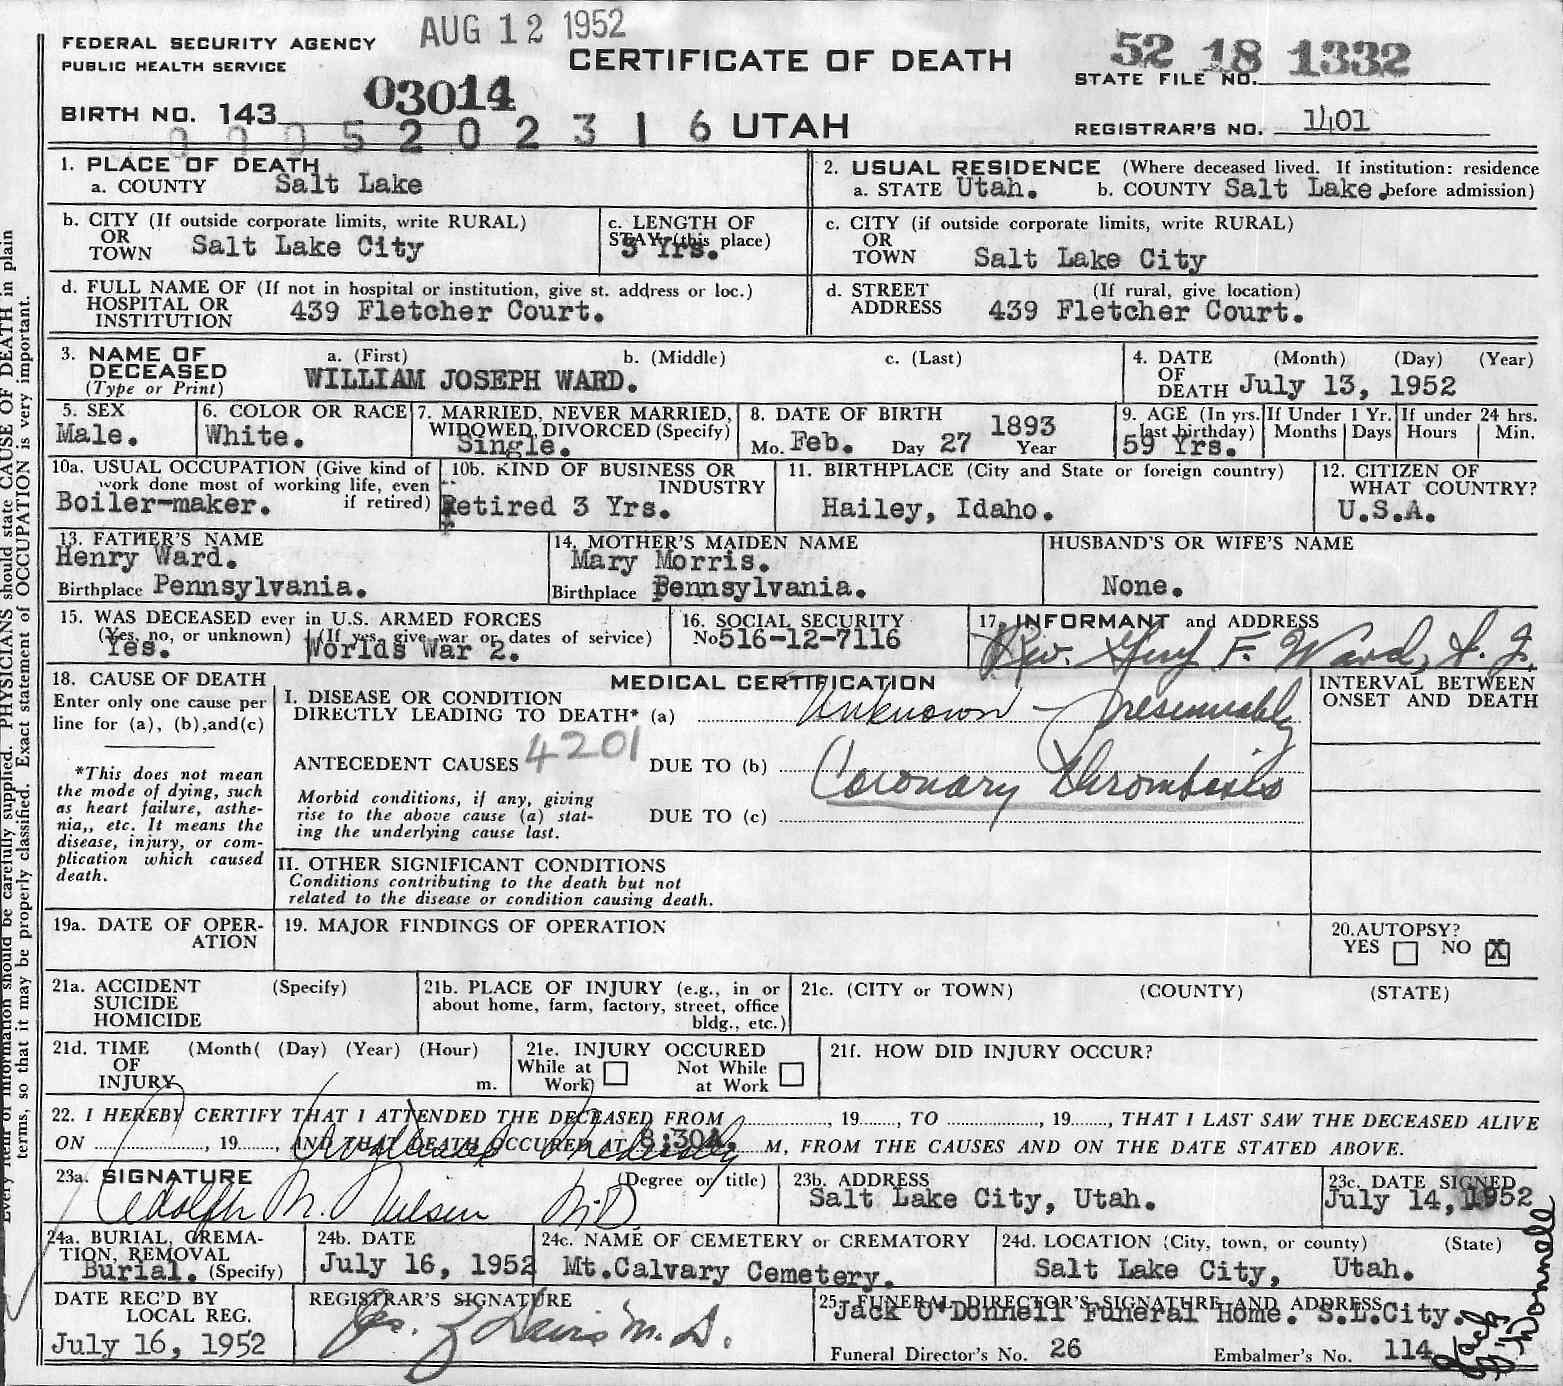 AUG 12 1952
FEDERAL SECURITY AGENCY
PUBLIC HEALTH SERVICE
CERTIFICATE OF DEATH
52 18 1332
STATE FILE NO.
BIRTH NO. 143 03014
0005202316 UTAH
REGISTRAR'S NO. 1401
1. PLACE OF DEATH
a. COUNTY Salt Lake
2. USUAL RESIDENCE (Where deceased lived. If institution: residence
a. STATE Utah. b. COUNTY Salt Lake. before admission)
b. CITY (If outside corporate limits, write RURAL)
OR
TOWN Salt Lake City
c. LENGTH OF
STAY (this place)
Yrs.
c. CITY (if outside corporate limits, write RURAL)
OR
TOWN Salt Lake City
d. FULL NAME OF (If not in hospital or institution, give st. address or loc.)
HOSPITAL OR
INSTITUTION 439 Fletcher Court.
d. STREET (If rural, give location)
ADDRESS 439 Fletcher Court.
3. NAME OF DECEASED (Type or Print)
a. (First) b. (Middle) c. (Last)
WILLIAM JOSEPH WARD.
4. DATE OF DEATH (Month) (Day) (Year)
July 13, 1952
5. SEX
Male.
6. COLOR OR RACE
White.
7. MARRIED, NEVER MARRIED,
WIDOWED, DIVORCED (Specify)
Single.
8. DATE OF BIRTH 1893
Mo. Feb. Day 27 Year
9. AGE (In yrs. last birthday)
59 Yrs.
If Under 1 Yr.
Months Days
If under 24 hrs.
Hours Min.
10a. USUAL OCCUPATION (Give kind of
work done most of working life, even
if retired)
Boiler-maker.
10b. KIND OF BUSINESS OR
INDUSTRY
Retired 3 Yrs.
11. BIRTHPLACE (City and State or foreign country)
Hailey, Idaho.
12. CITIZEN OF
WHAT COUNTRY?
U.S.A.
13. FATHER'S NAME
Henry Ward.
Birthplace Pennsylvania.
14. MOTHER'S MAIDEN NAME
Mary Morris.
Birthplace Pennsylvania.
HUSBAND'S OR WIFE'S NAME
None.
15. WAS DECEASED ever in U.S. ARMED FORCES
(Yes, no, or unknown) (If yes, give war or dates of service)
Yes. Worlds War 2.
16. SOCIAL SECURITY
No 516-12-7116
17. INFORMANT and ADDRESS
Rev. F. Ward, S. J.
18. CAUSE OF DEATH
Enter only one cause per
line for (a), (b),and(c)
*This does not mean
the mode of dying, such
as heart failure, asthe-
nia,, etc. It means the
disease, injury, or com-
plication which caused
death.
MEDICAL CERTIFICATION
I. DISEASE OR CONDITION
DIRECTLY LEADING TO DEATH* (a) Unknown - presumably
4201
ANTECEDENT CAUSES DUE TO (b) Coronary Thrombosis
Morbid conditions, if any, giving
rise to the above cause (a) stat-
ing the underlying cause last.
DUE TO (c)
INTERVAL BETWEEN
ONSET AND DEATH
II. OTHER SIGNIFICANT CONDITIONS
Conditions contributing to the death but not
related to the disease or condition causing death.
19a. DATE OF OPER-
ATION
19. MAJOR FINDINGS OF OPERATION
20. AUTOPSY?
YES NO X
21a. ACCIDENT (Specify)
SUICIDE
HOMICIDE
21b. PLACE OF INJURY (e.g., in or
about home, farm, factory, street, office
bldg., etc.)
21c. (CITY or TOWN) (COUNTY) (STATE)
21d. TIME (Month( (Day) (Year) (Hour)
OF
INJURY m.
21e. INJURY OCCURED
While at Work)
Not While at Work
21f. HOW DID INJURY OCCUR?
22. I HEREBY CERTIFY THAT I ATTENDED THE DECEASED FROM ........, 19......, TO ........, 19......, THAT I LAST SAW THE DECEASED ALIVE
ON ........, 19......, AND THAT DEATH OCCURED AT 8:30A. M, FROM THE CAUSES AND ON THE DATE STATED ABOVE.
23a. SIGNATURE (Degree or title)
Adolph M. Nielsen M.D.
23b. ADDRESS
Salt Lake City, Utah.
23c. DATE SIGNED
July 14, 1952
24a. BURIAL, CREMA-
TION, REMOVAL
Burial. (Specify)
24b. DATE
July 16, 1952
24c. NAME OF CEMETERY or CREMATORY
Mt.Calvary Cemetery.
24d. LOCATION (City, town, or county) (State)
Salt Lake City, Utah.
DATE REC'D BY
LOCAL REG.
July 16, 1952
REGISTRAR'S SIGNATURE
M. D.
25. FUNERAL DIRECTOR'S SIGNATURE AND ADDRESS
Jack O'Donnell Funeral Home. S.L.City.
Funeral Director's No. 26 Embalmer's No. 114
Jack O'Donnell
PHYSICIANS should state CAUSE OF DEATH in plain
terms, so that it may be properly classified. Exact statement of OCCUPATION is very important.
Every item of information should be carefully supplied.